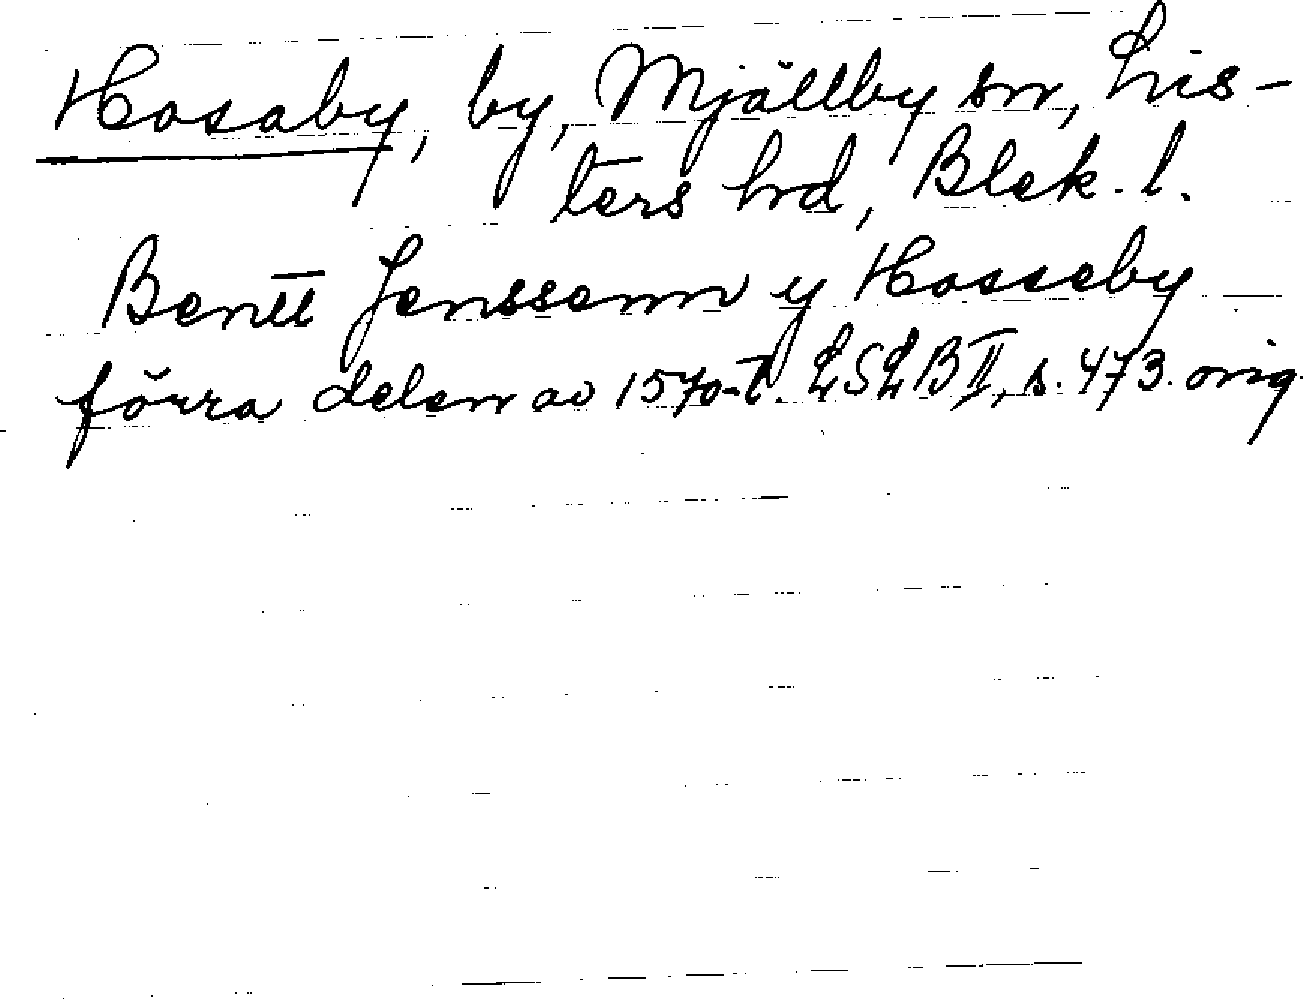 Hosaby, by, Mjällby sn, Lis-
ters hd, Blek. l.
Bentt Jenssenn y Hosseby
förra delen av 1570-t. LSLB II, s. 473. orig.